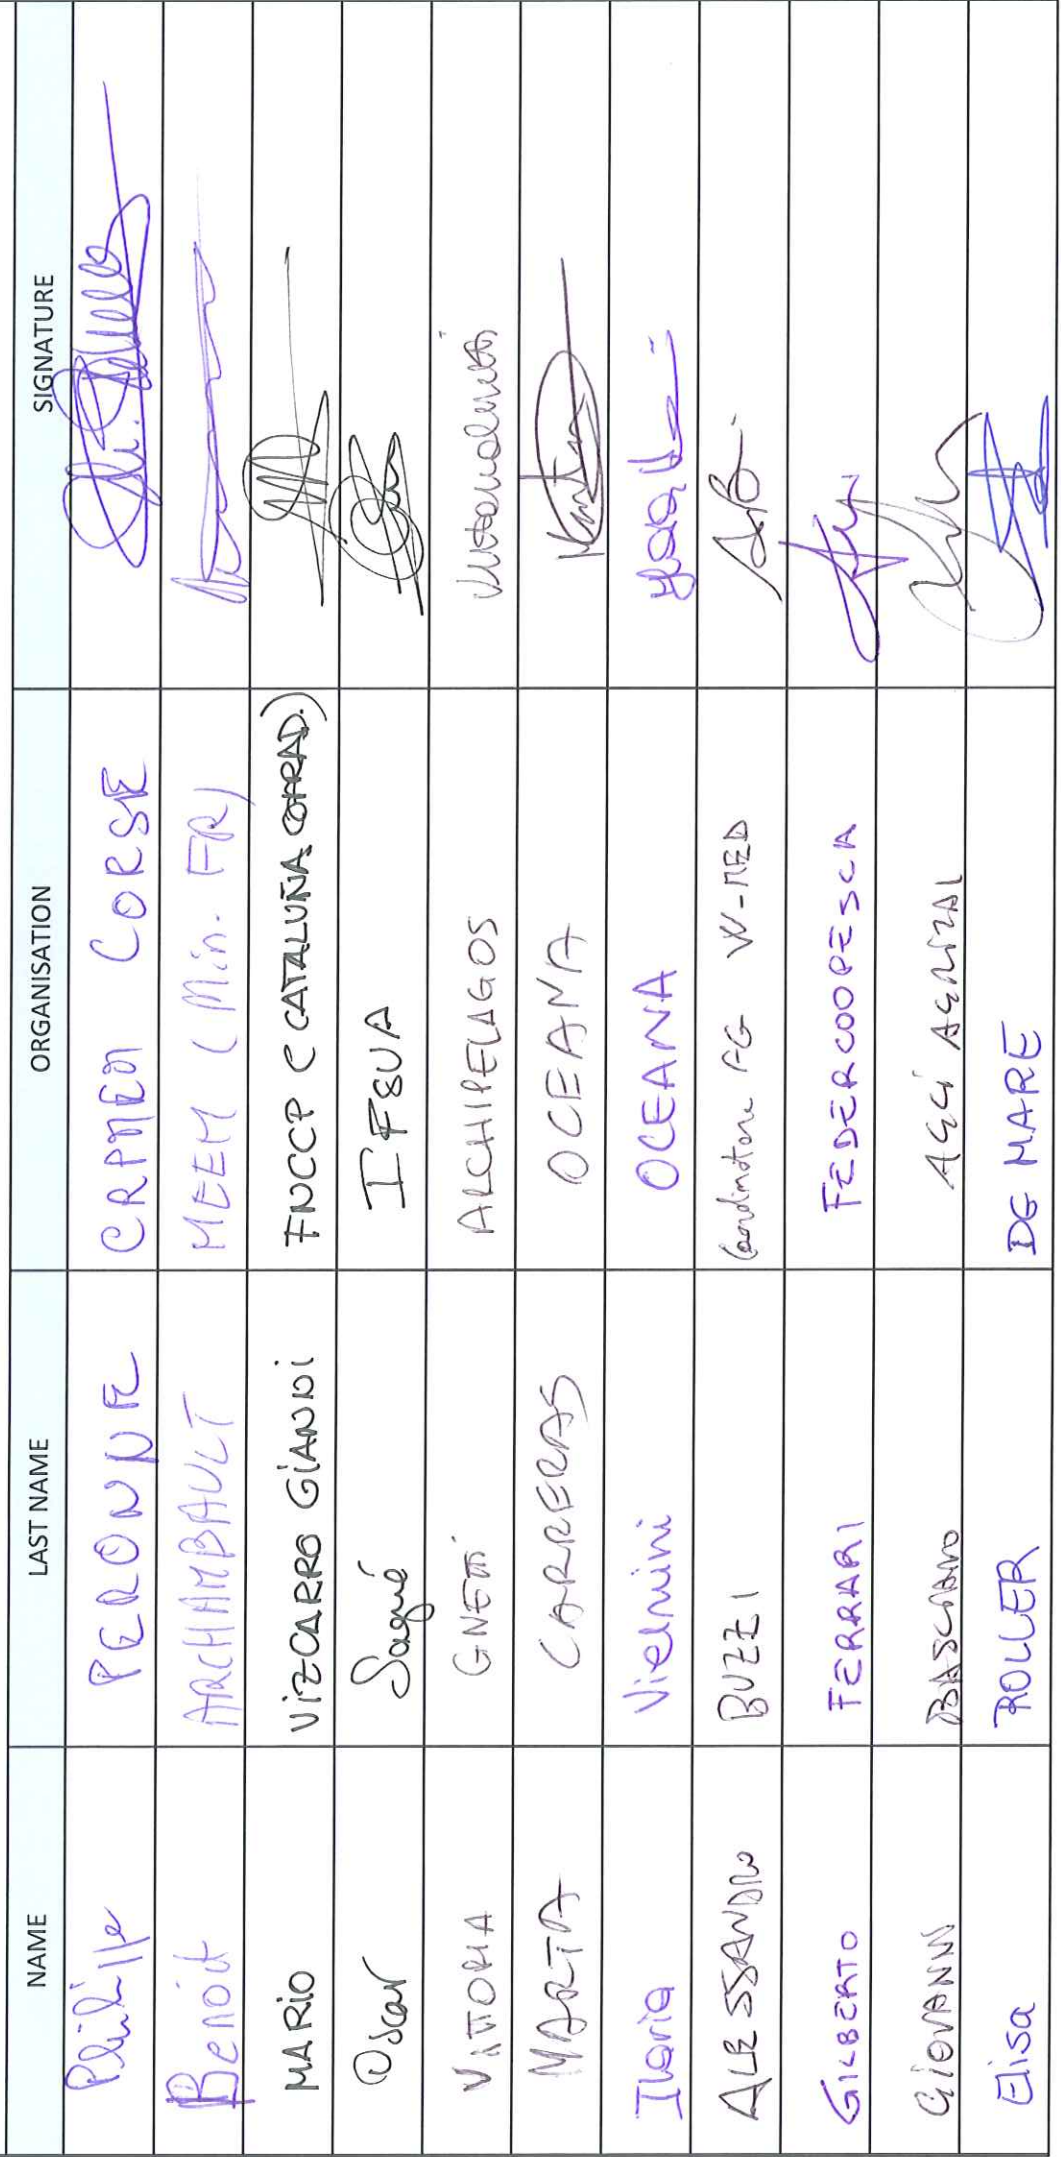 NAME LAST NAME ORGANISATION SIGNATURE
Philippe PERONNE CRPMEM CORSE
Benoit ARCHAMBAULT MEEM (Min. FR)
MARIO VIZCARRO GIANNI FNCCP (CATALUÑA COFRAD.)
Oscar Sagué IFSUA
VITTORIA GNETTI ARCHIPELAGOS
MARTA CARRERAS OCEANA Marta
Ilaria Vielmini OCEANA
ALESSANDRO BUZZI Coordinatore FG W-MED
GILBERTO FERRARI FEDERCOOPESCA
GIOVANNI BASCIANO AGCI AGRITAL
Elisa ROLLER DG MARE